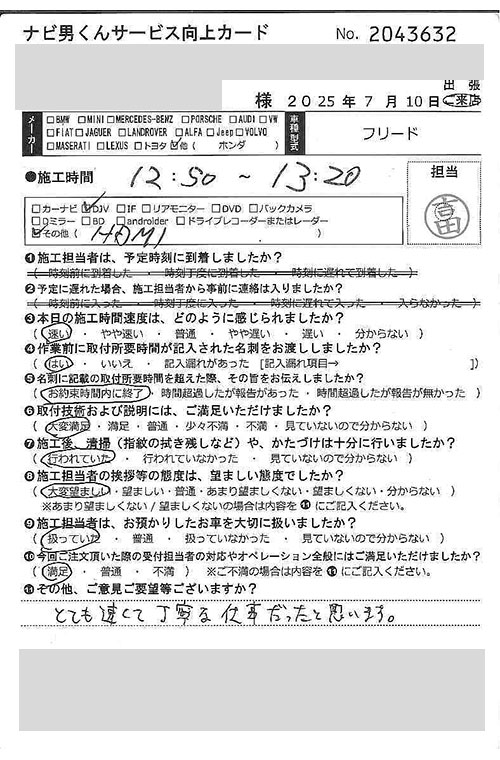 ナビ男くんサービス向上カード No. 2043632
出 張
様 2025年7月10日・ご来店
メーカー □BMW □MINI □MERCEDES-BENZ □PORSCHE □AUDI □VW
□FIAT □JAGUER □LANDROVER □ALFA □Jeep □VOLVO
□MASERATI □LEXUS □トヨタ ☑他 ( ホンダ )
車種型式 フリード
●施工時間 12:50 ~ 13:20
担当
富
□カーナビ ☑DJV □IF □リアモニター □DVD □バックカメラ
□Dミラー □BD □androider □ドライブレコーダーまたはレーダー
☑その他 ( HDMI )
❶施工担当者は、予定時刻に到着しましたか?
( 時刻前に到着した ・ 時刻丁度に到着した ・ 時刻に遅れて到着した )
❷予定に遅れた場合、施工担当者から事前に連絡は入りましたか?
( 時刻前に入った ・ 時刻丁度に入った ・ 時刻に遅れて入った ・ 入らなかった )
❸本日の施工時間速度は、どのように感じられましたか?
( 速い ・ やや速い ・ 普通 ・ やや遅い ・ 遅い ・ 分からない )
❹作業前に取付所要時間が記入された名刺をお渡ししましたか?
( はい ・ いいえ ・ 記入漏れがあった [記入漏れ項目→ ])
❺名刺に記載の取付所要時間を超えた際、その旨をお伝えしましたか?
( お約束時間内に終了 ・ 時間超過したが報告があった ・ 時間超過したが報告が無かった )
❻取付技術および説明には、ご満足いただけましたか?
( 大変満足 ・ 満足 ・ 普通 ・ 少々不満 ・ 不満 ・ 見ていないので分からない )
❼施工後、清掃(指紋の拭き残しなど)や、かたづけは十分に行いましたか?
( 行われていた ・ 行われていなかった ・ 見ていないので分からない )
❽施工担当者の挨拶等の態度は、望ましい態度でしたか?
( 大変望ましい・望ましい・普通・あまり望ましくない・望ましくない・分からない )
※あまり望ましくない/望ましくないの場合は内容を⓫にご記入ください。
❾施工担当者は、お預かりしたお車を大切に扱いましたか?
( 扱っていた ・ 普通 ・ 扱っていなかった ・ 見ていないので分からない )
❿今回ご注文頂いた際の受付担当者の対応やオペレーション全般にはご満足いただけましたか?
( 満足 ・ 普通 ・ 不満 ) ※ご不満の場合は内容を⓫にご記入ください。
⓫その他、ご意見ご要望等ございますか?
とても速くて丁寧な仕事だったと思います。